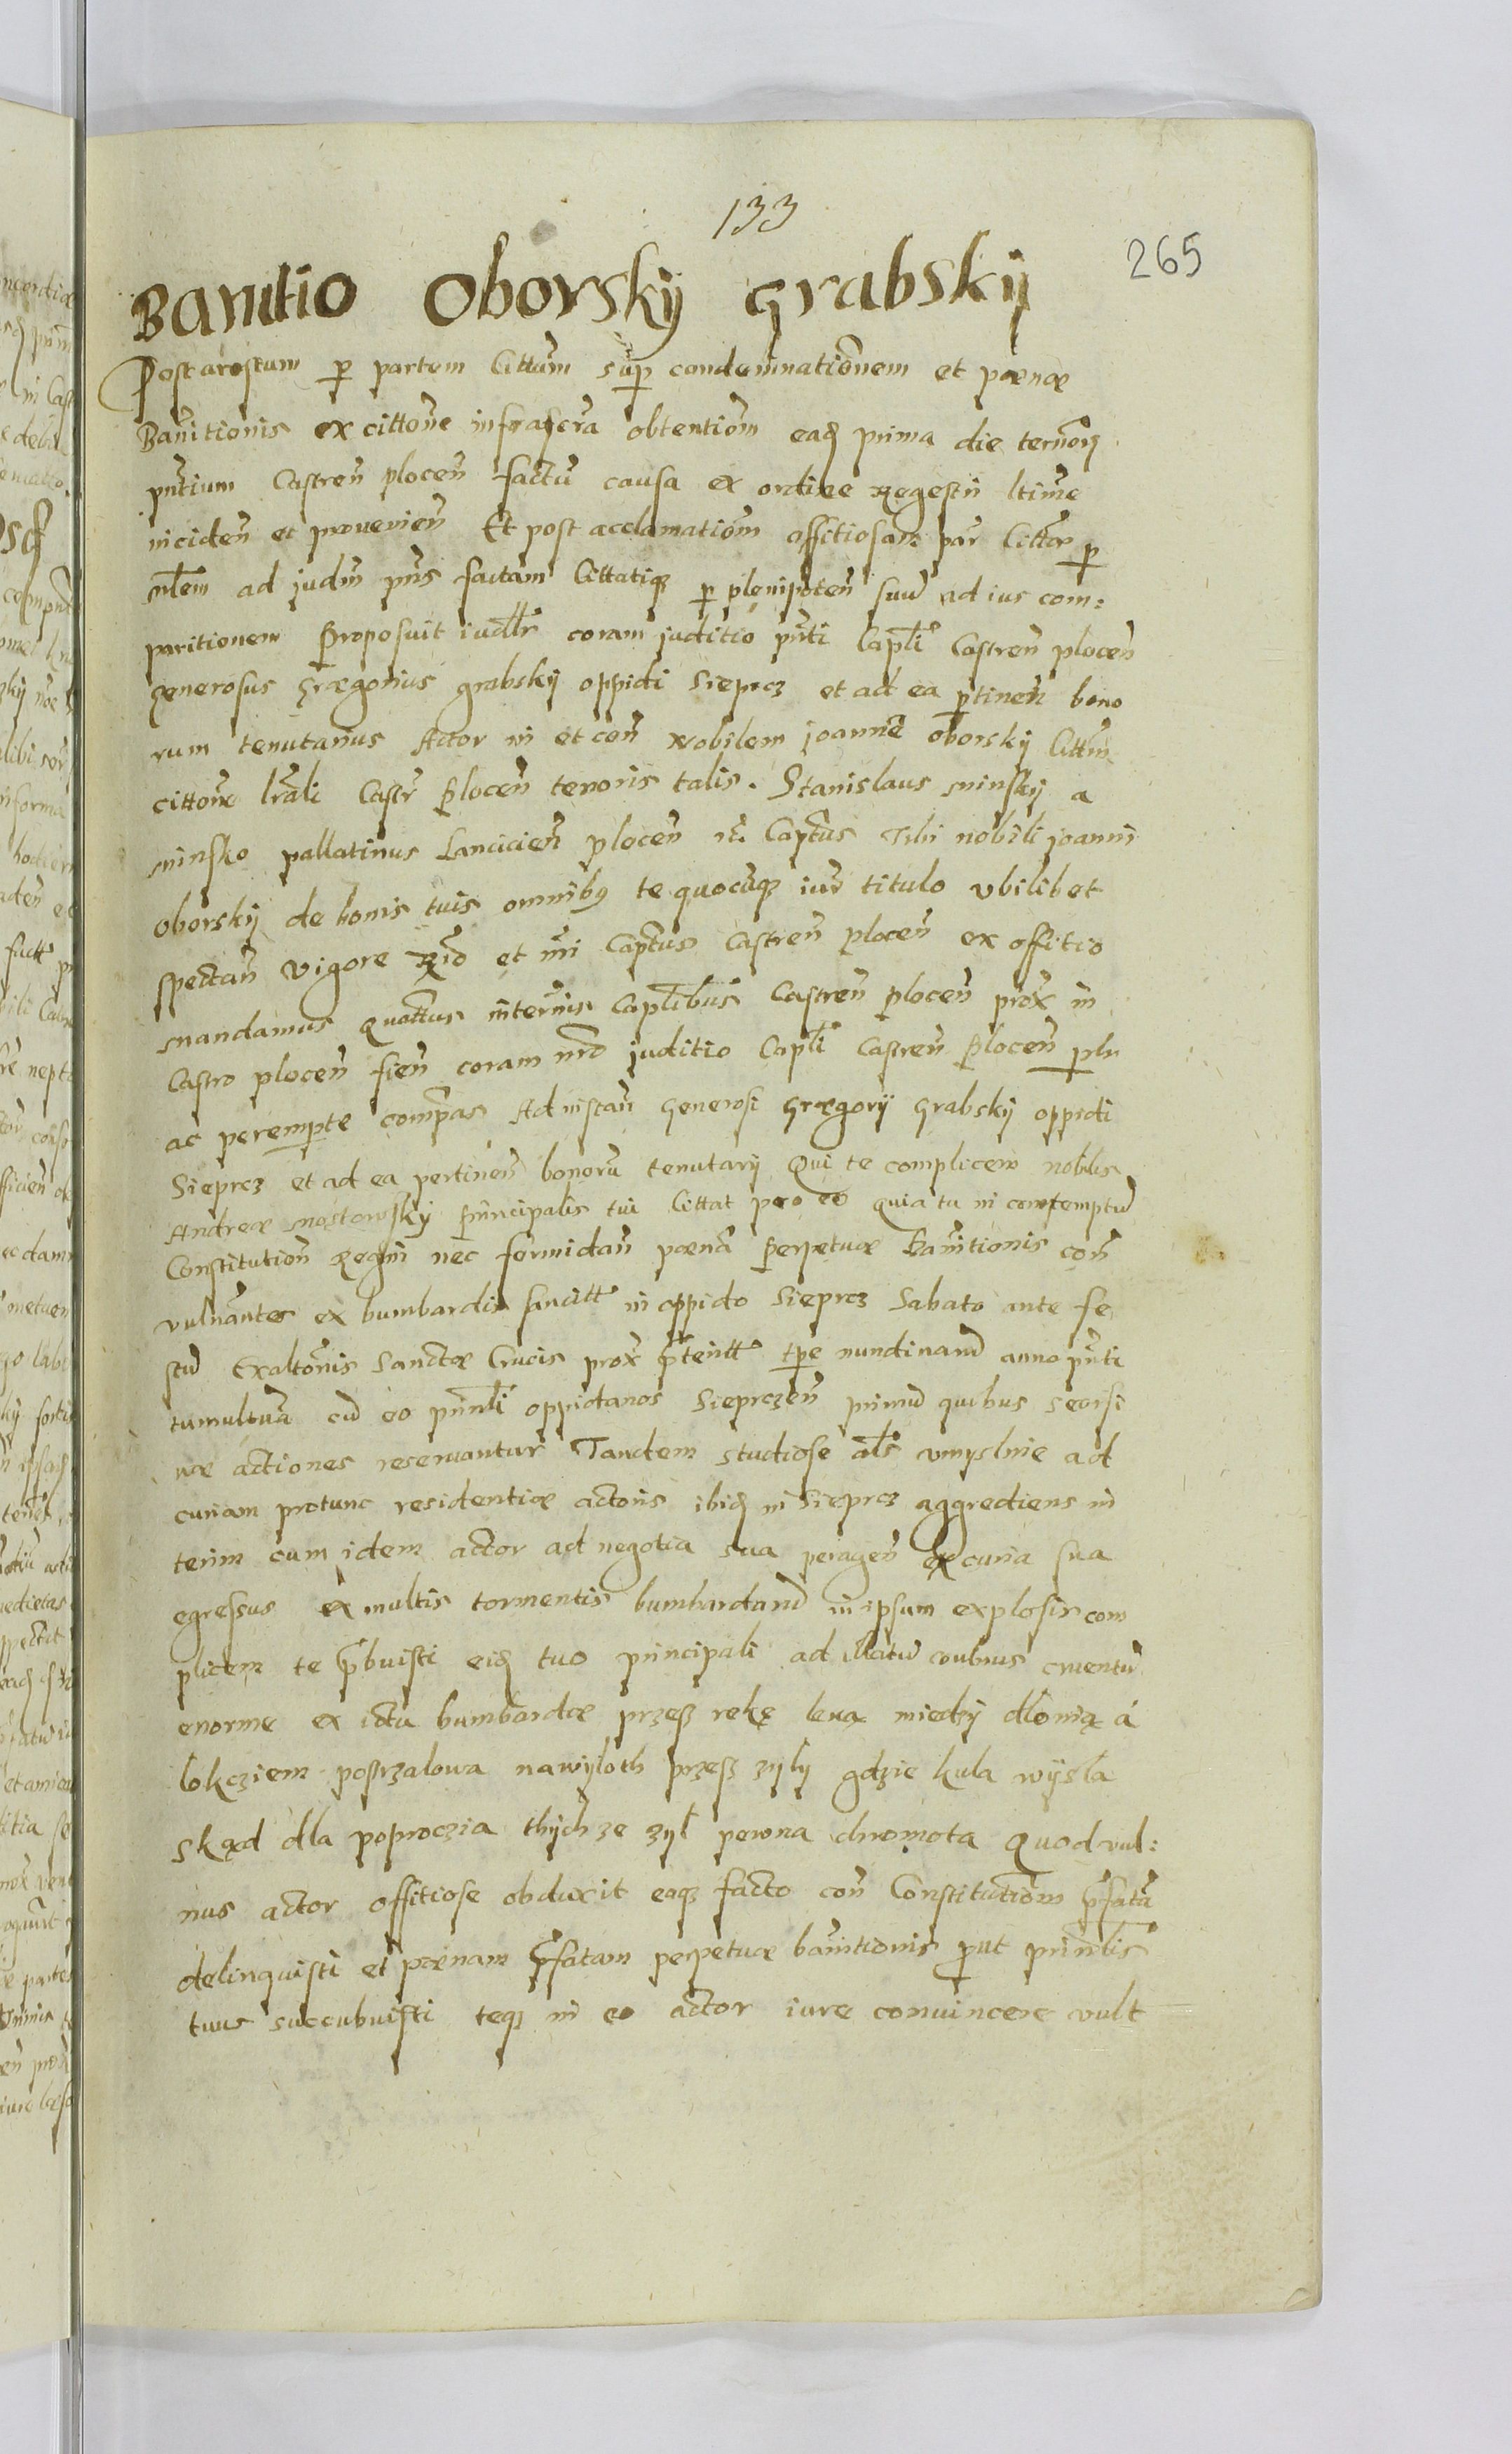 133
265
Banitio Oborskij Grabskij
Post arestum p partem Cittam sup condemnationem et poenae
Banitionis ex cittone infrascra obtentiom eadq prima die terorq
pntium Castren plocen factu causa ex ordine Regestri ltime
inciden et provenien Et post acclamatiom offitiosam par Cittae p
mlem ad judm pns factam Cittatiq p plenipoten suu ad ius com:
paritionem Proposuit iudlr coram juditio pnti Capli Castren plocen
generosus Graegorius grabskij oppidi Sieprcz et ad ea ptinen bono
rum tenutarius Actor in et con Nobilem joanne oborskij Cittm
cittone lrali Castr Plocen tenoris talis. Stanislaus minskij a
minsko pallatinus Lancicien plocen Captus Tibi nobili joanni
oborskij de bonis tuis omnibq te quocuq iur titulo vbilibet
spectan vigore Rio et nri Captus Castren plocen ex offitio
mandamus Quattus interis Caplibus Castren plocen prox in
Castro plocen fien coram nro juditio Capli Castren Plocen plr
ac perempte compas Ad instan Generosi Graegorij Grabskij oppidi
Sieprcz et ad ea pertinen bonoru tenutarij Qui te complicem nobilis
Andreae mostowskij Principalis tui Cittat pro eo quia tu in contemptu
Constitution Regni nec formidan poena Perpetuae Banitionis con
vulnantes ex bumbardis sancitt in oppido Sieprcz Sabato ante fe
stu Exaltonis Sanctae Crucis prox pteritt tpe nundinaru anno pnti
tumultua cu eo prinli oppidanos Sieprczen primu quibus seorsi
vae actiones reservantur Tandem studiose als vmyslnie ad
curiam protunc residentiae actoris ibidq in Sieprcz aggrediens in
terim cum idem actor ad negotia sua peragen ex curia sua
egressus ex multis tormentis bumbardaru in ipsum explosis com
plicem te pbuisti eidq tuo principali ad illatu vulnus cruentu
enorme ex ictu bumbardae przesz rekę lewą miedzij dlonią á
lokcziem postrzalowa nawijloth przesz zijlij gdzie kula wijsla
skąd dla poproczia thijchze zijl pewna chromota Quod vul:
nus actor offitiose obduxit eoq facto con Constitutiom pfata
delinquisti et poenam pfatam perpetuae banitionis put prinlis
tuus succubuisti teq in eo actor iure convincere vult